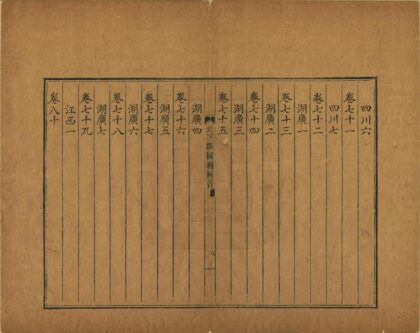 四川六
卷七十一
四川七
卷七十二
湖廣一
卷七十三
湖廣二
卷七十四
湖廣三
卷七十五
天下郡國利病書
八
湖廣四
卷七十六
湖廣五
卷七十七
湖廣六
卷七十八
湖廣七
卷七十九
江西一
卷八十